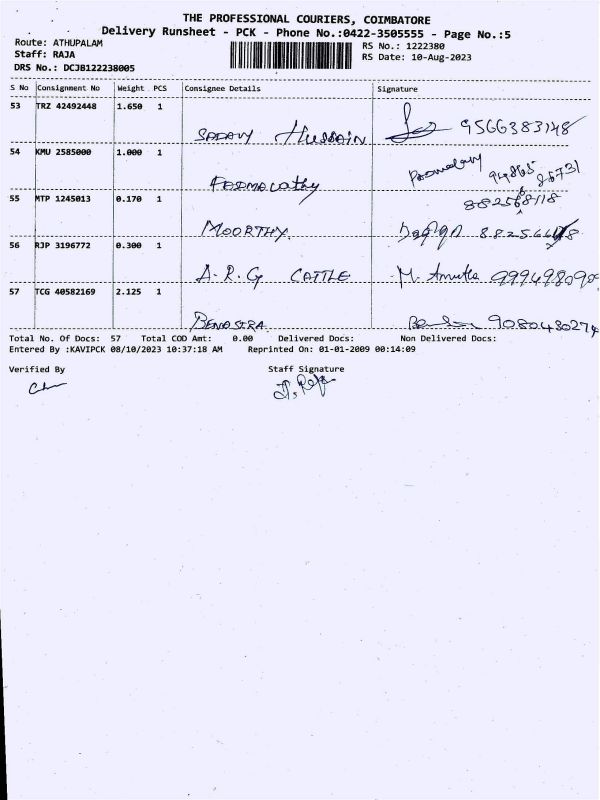 THE PROFESSIONAL COURIERS, COIMBATORE
Delivery Runsheet - PCK - Phone No.:0422-3505555 - Page No.:5
Route: ATHUPALAM
RS No.: 1222380
Staff: RAJA
RS Date: 10-Aug-2023
DRS No.: DCJB122238005
S No Consignment No Weight PCS Consignee Details Signature
53 TRZ 42492448 1.650 1 Hussain 9566383148
54 KMU 2585000 1.000 1
55 MTP 1245013 0.170 1 MOORTHY.
56 RJP 3196772 0.300 1 A.R.G CATTLE M.
57 TCG 40582169 2.125 1 9080480274
Total No. Of Docs: 57 Total COD Amt: 0.00 Delivered Docs: Non Delivered Docs:
Entered By :KAVIPCK 08/10/2023 10:37:18 AM Reprinted On: 01-01-2009 00:14:09
Verified By Staff Signature